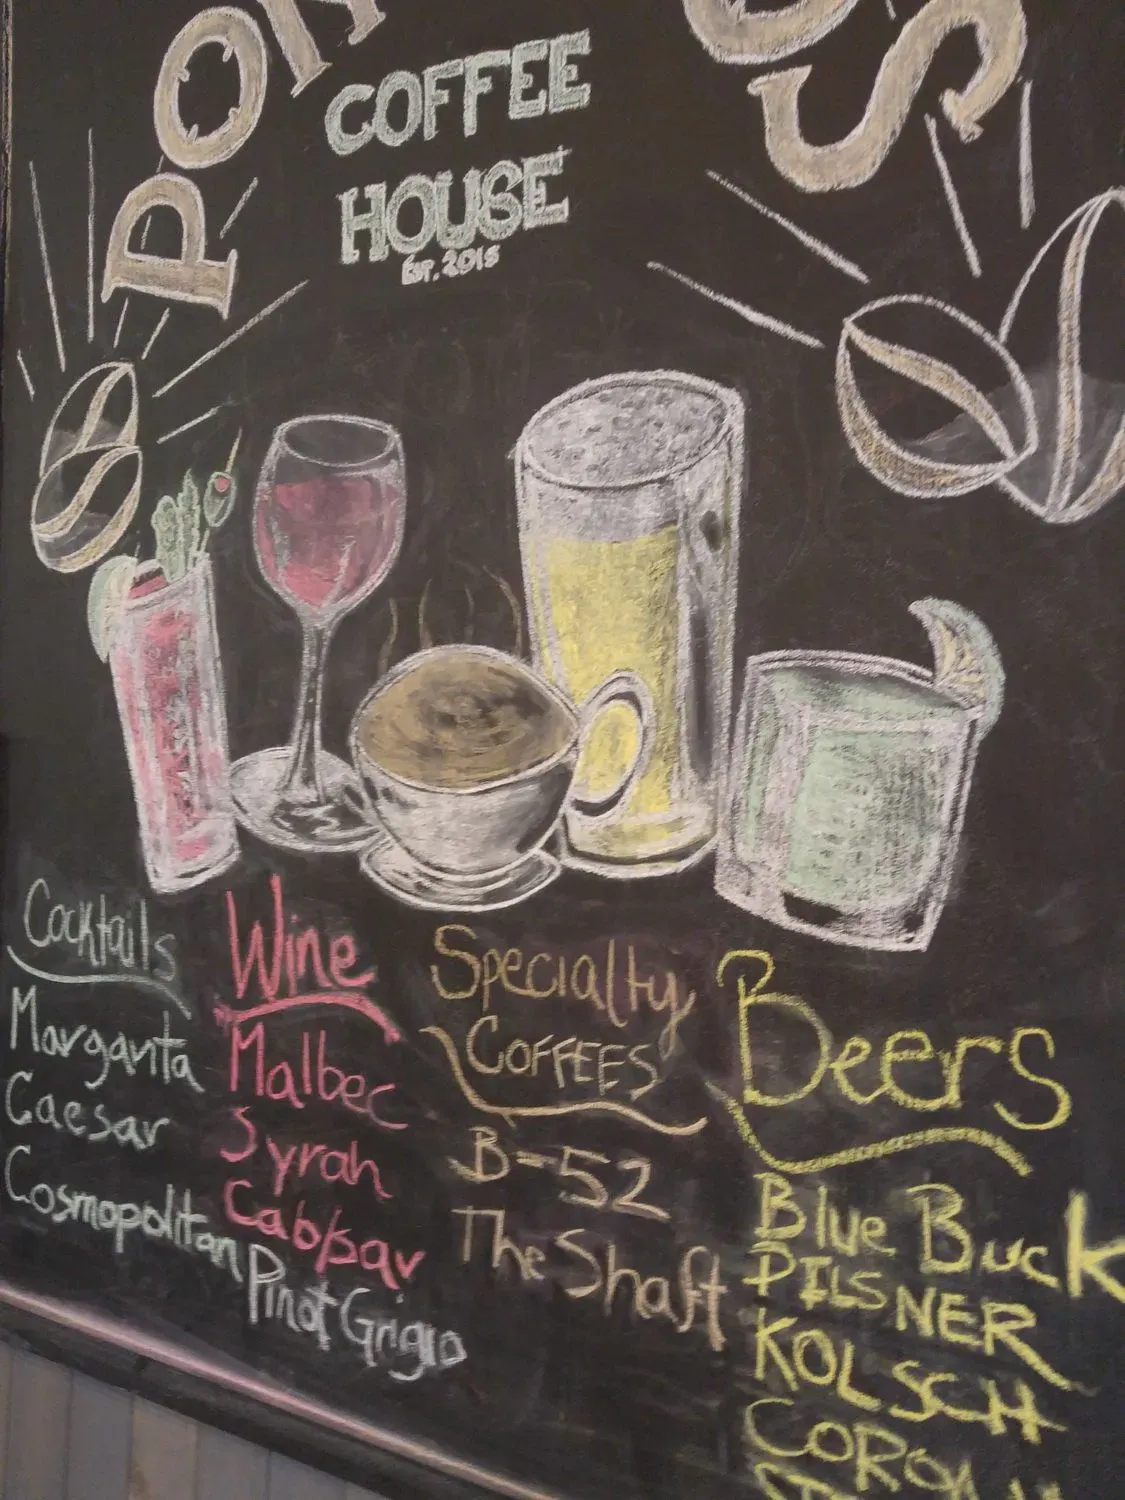 COFFEE
HOUSE
EST. 2015
Cocktails
Margarita
Caesar
Cosmopolitan
Wine
Malbec
Syrah
Cab/Sav
Pinot Grigio
Specialty
COFFEES
B-52
The Shaft
Beers
Blue Buck
PILSNER
KOLSCH
CORONA